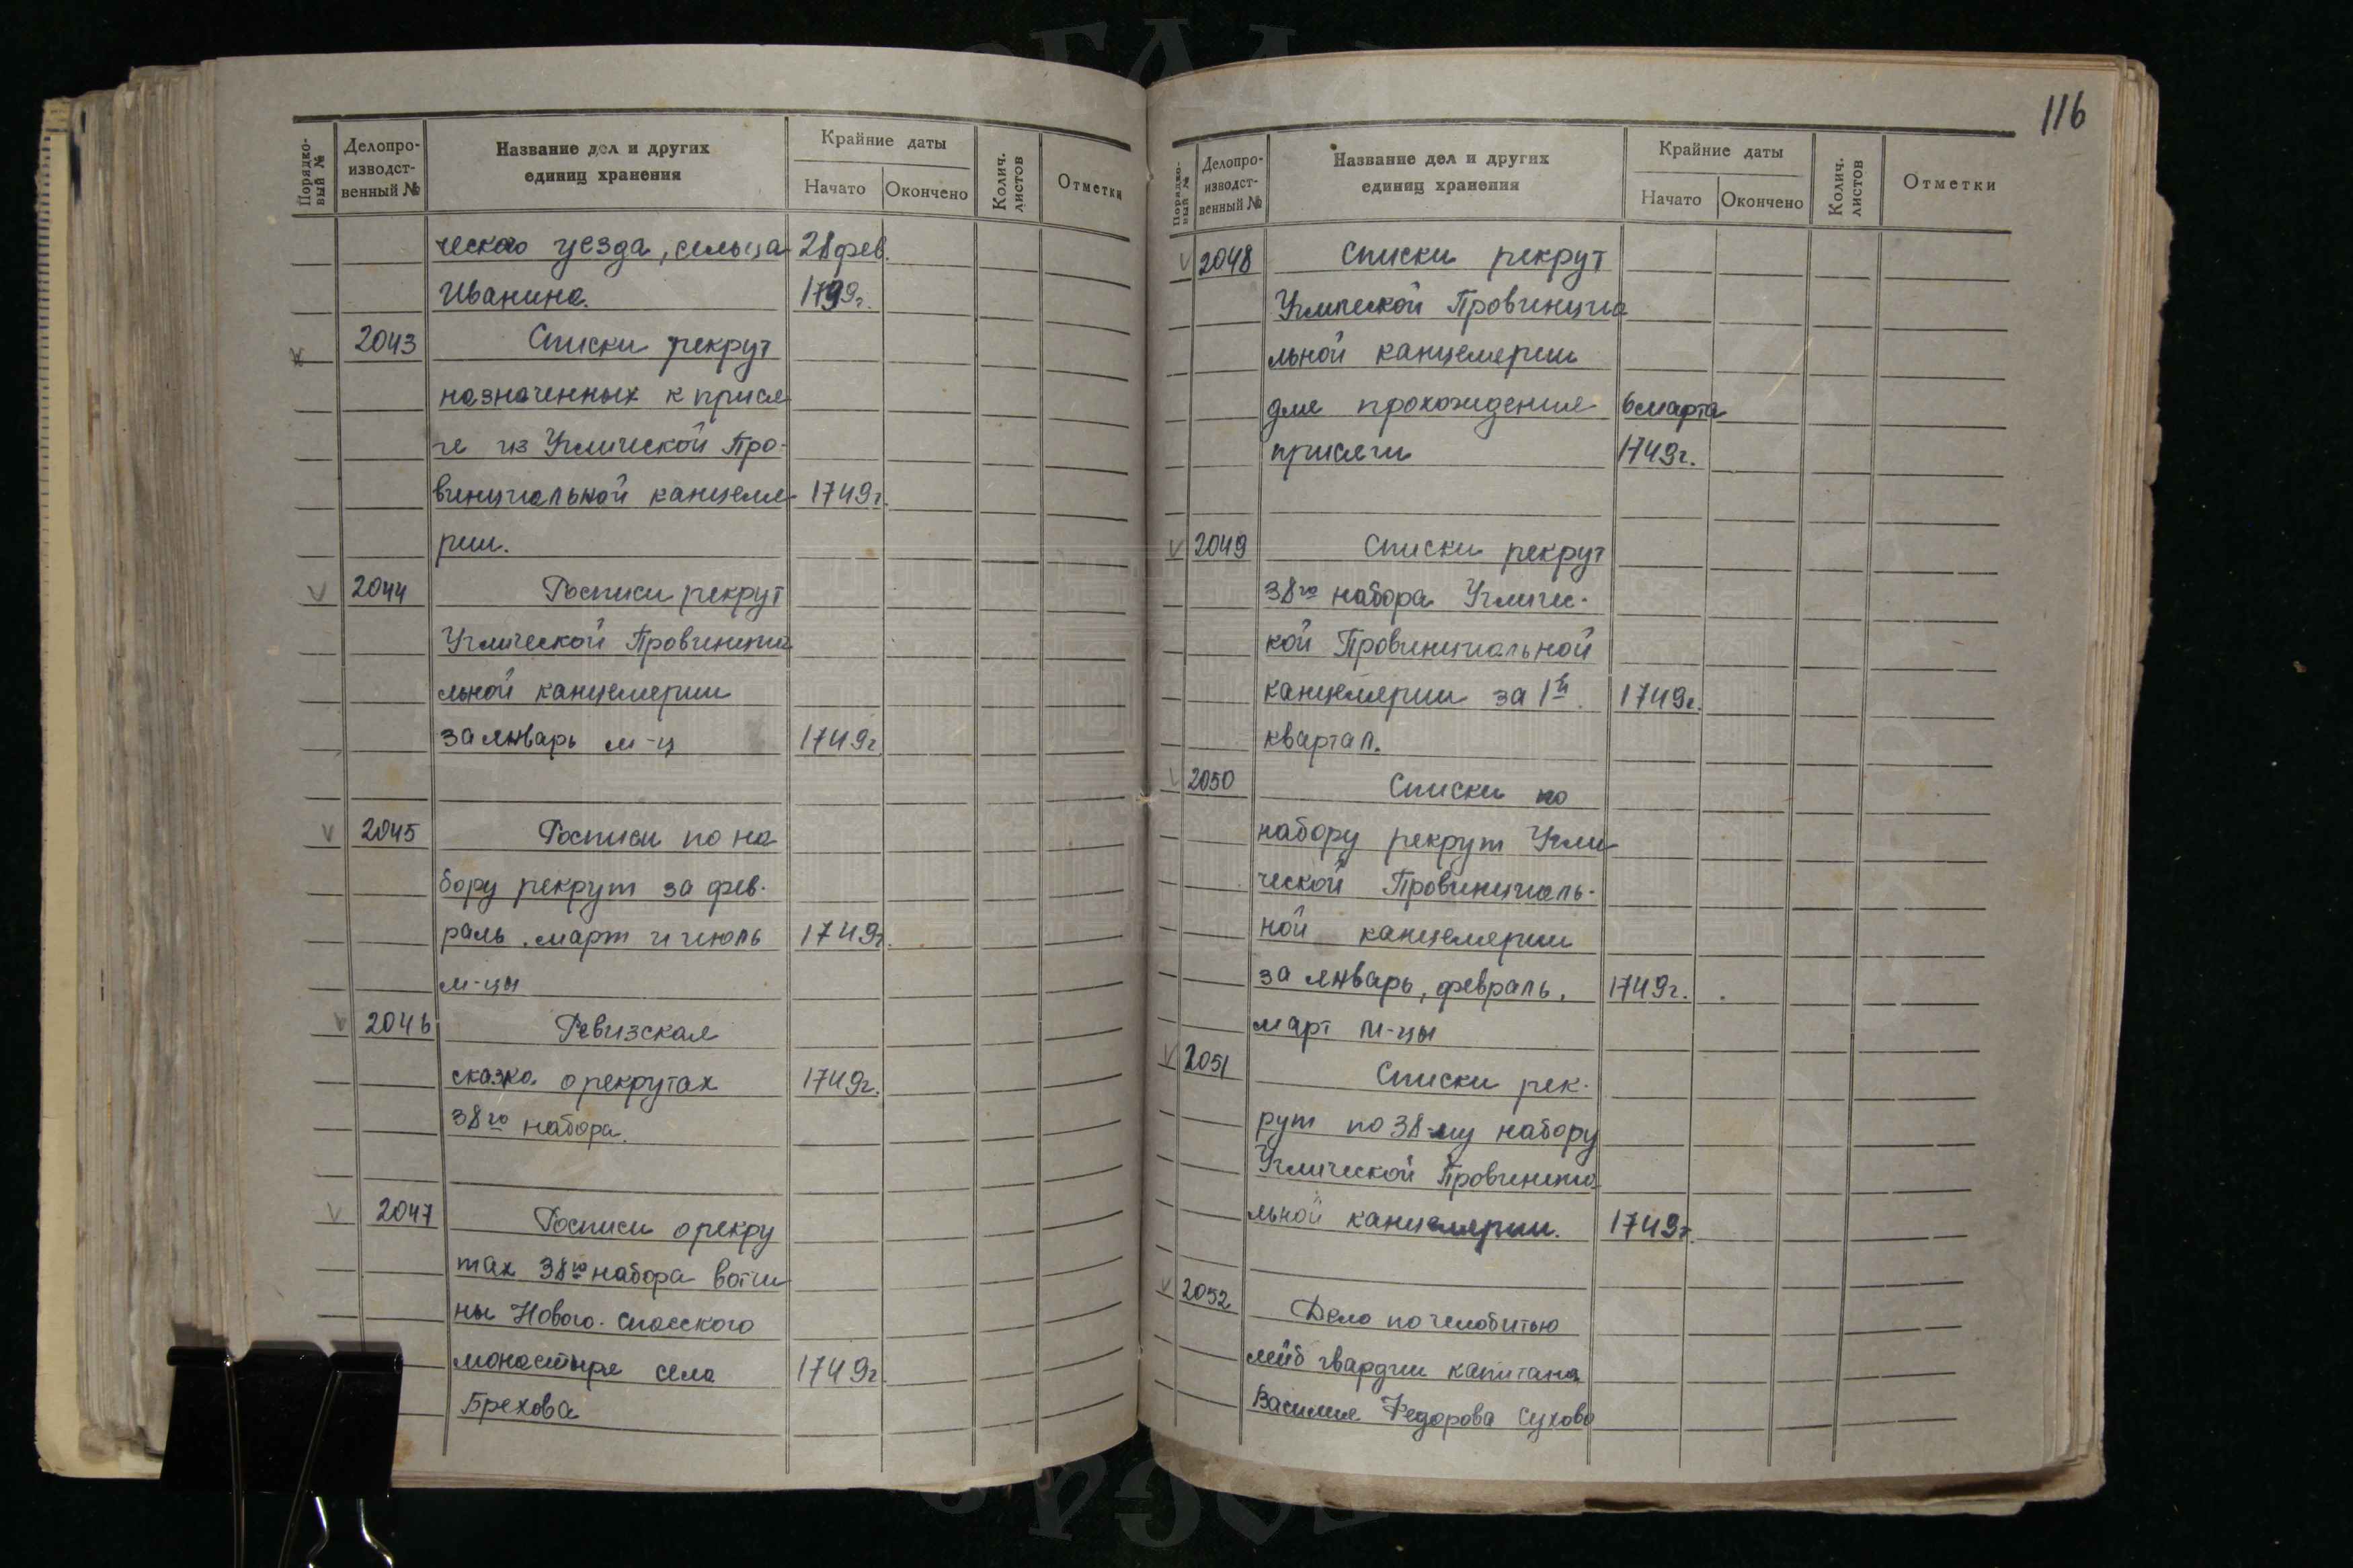 116
Порядко-
вый №
Делопро-
изводст-
венный №
Название дел и других
единиц хранения
Крайние даты
Начато
Окончено
Колич.
листов
Отметки
ческого уезда, сельца 28 фев.
Иванина. 1749г.
2043 Списки рекрут
назначенных к прися
ге из Угличской Про-
винциальной канцеля- 1749г.
рии.
V 2044 Росписи рекрут
Угличской Провинциа
льной канцелярии
за январь м-ц 1749г.
V 2045 Росписи по на
бору рекрут за фев-
раль, март и июль 1749г.
м-цы
V 2046 Ревизская
сказка о рекрутах 1749г.
38го набора.
V 2047 Росписи о рекру
тах 38го набора вотчи
ны Нового-Спасского
монастыря села 1749г.
Брехова
Порядко-
вый №
Делопро-
изводст-
венный №
Название дел и других
единиц хранения
Крайние даты
Начато
Окончено
Колич.
листов
Отметки
V 2048 Списки рекрут
Угличской Провинциа
льной канцелярии
для прохождения 6 марта
присяги 1749г.
V 2049 Списки рекрут
38го набора Угличс-
кой Провинциальной
канцелярии за 1й 1749г.
квартал.
V 2050 Списки по
набору рекрут Угли
ческой Провинциаль-
ной канцелярии
за январь, февраль, 1749г.
март м-цы
V 2051 Списки рек-
рут по 38-му набору
Углической Провинциа
льной канцелярии. 1749г.
V 2052 Дело по челобитью
лейб гвардии капитана
Василия Федорова Сухово